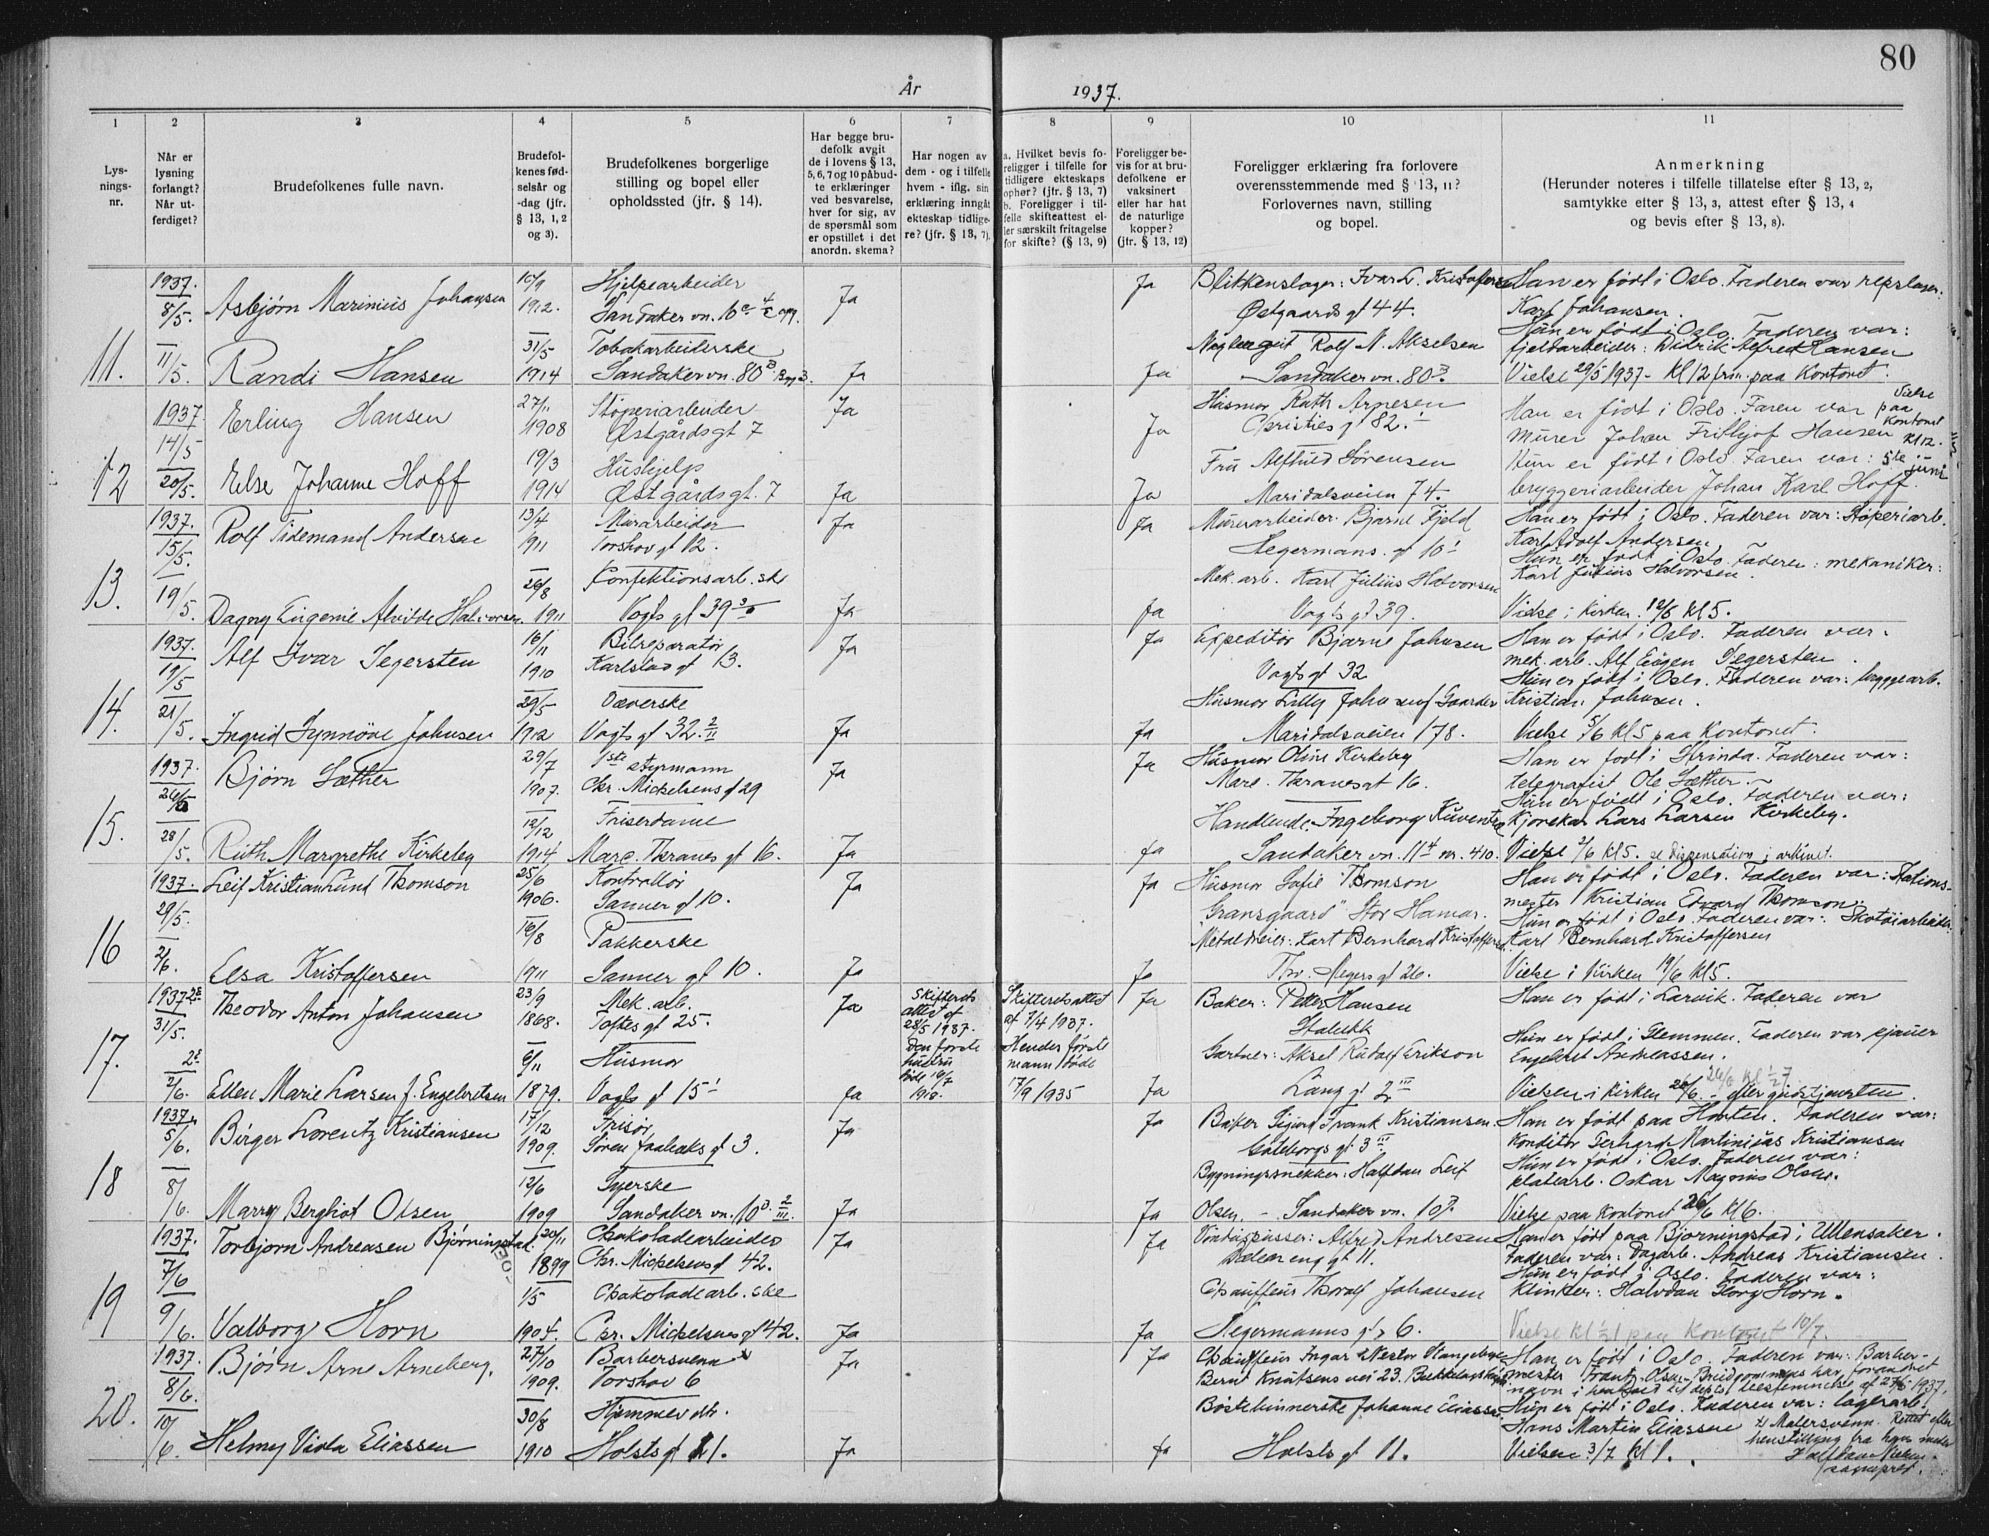 80
År 1937.
1 2 3 4 5 6 7 8 9 10 11
Lysningsnr.
Når er lysning forlangt? Når utferdiget?
Brudefolkenes fulle navn.
Brudefolkenes fødselsår og -dag (jfr. § 13, 1, 2 og 3).
Brudefolkenes borgerlige stilling og bopel eller opholdssted (jfr. § 14).
Har begge brudefolk avgit de i lovens § 13, 5, 6, 7 og 10 påbudte erklæringer ved besvarelse, hver for sig, av de spørsmål som er opstillet i det anordn. skema?
Har nogen av dem - og i tilfelle hvem - iflg. sin erklæring inngåt ekteskap tidligere? (jfr. § 13, 7).
a. Hvilket bevis foreligger i tilfelle for tidligere ekteskaps ophør? (jfr. § 13, 7)
b. Foreligger i tilfelle skifteattest eller særskilt fritagelse for skifte? (§ 13, 9)
Foreligger bevis for at brudefolkene er vaksinert eller har hat de naturlige kopper? (jfr. § 13, 12)
Foreligger erklæring fra forlovere overensstemmende med § 13, 11? Forlovernes navn, stilling og bopel.
Anmerkning (Herunder noteres i tilfelle tillatelse efter § 13, 2, samtykke efter § 13, 3, attest efter § 13, 4 og bevis efter § 13, 8).
11.
1937. 8/5. Asbjørn Marinius Johansen 10/9 1912. Hjelpearbeider Ja Ja
Blikkenslager: Ivar L. Østgaards gt 44.
Han er født i Oslo. Faderen var repslager: Karl Johansen.
11/5. Randi Hansen 31/5 1914 Tobakarbeiderske Sandaker vn. 80 Ja Ja
Rolf N. Akselsen Sandaker vn. 80
Hun er født i Oslo. Faderen var: fjeldarbeider: Didrik Alfred Hansen
Vielse 29/5 1937 - kl 12 paa Kontoret.
12
1937 14/5 Erling Hansen 27/11 1908 Støperiarbeider Østgårdsgt 7 Ja Ja
Husmor Ruth Arnesen Christies gt 82.
Han er født i Oslo. Faren var murer Johan Frithjof Hansen
Vielse paa Kontoret kl 12. 5te juni
20/5. Else Johanne Hoff 19/3 1914 Hushjelp Østgårdsgt. 7 Ja Ja
Fru Alfhild Sørensen Maridalsveien 74.
Hun er født i Oslo. Faren var: bryggeriarbeider Johan Karl Hoff.
13.
1937. 15/5. Rolf Tidemand Andersen 13/4 1911 Murarbeider Torshov gt 12. Ja Ja
Murerarbeider Bjarne Fjeld Hegermans gt 10
Han er født i Oslo. Faderen var: Støperiarb. Karl Adolf Andersen
19/5. Dagny Eugenie Alvilde Halvorsen 26/8 1911 Konfektionsarb.ske Vogts gt 39 Ja Ja
Mek. arb. Karl Julius Halvorsen Vogts gt 39.
Hun er født i Oslo. Faderen: mekaniker: Karl Julius Halvorsen.
Vielse i Kirken 12/6 kl 5.
14.
1937. 19/5 Alf Ivar Segersten 16/11 1910 Bilreparatør Karlstad gt 13. Ja Ja
Expeditør Bjarne Johnsen Vogts gt 32
Han er født i Oslo. Faderen var. mek. arb. Alf Eugen Segersten.
21/5. Ingrid Synnøve Johnsen 29/5 1912 Væverske Vogts gt 32. Ja Ja
Husmor Lilly Johnsen f Gaarder Maridalsveien 178.
Hun er født i Oslo. Faderen var: byggearb. Kristian Johnsen.
Vielse 5/6 kl 5 paa Kontoret.
15.
1937. 26/5 Bjørn Sæther 29/7 1907. 1ste styrmann Chr. Mickelsens gt 29 Ja Ja
Husmor Oline Kirkeby Marc. Thranes gt 16.
Han er født i Strinda. Faderen var: telegrafist Ole Sæther.
28/5. Ruth Margrethe Kirkeby 12/12 1914 Friserdame Marc. Thranes gt 16. Ja Ja
Handlende Ingeborg Sandaker vn. 11
Hun er født i Oslo. Faderen var: Lars Larsen Kirkeby.
Vielse 2/6 kl 5. se Dispensation i arkivet.
16
1937. 29/5. Leif Kristianlund Thomson 25/6 1906. Kontrollør Sanner gt 10. Ja Ja
Husmor Sofie Thomson "Gransgaard" Stor Hamar.
Han er født i Oslo. Faderen var: Stationsmester Kristian Edvard Thomson.
2/6. Elsa Kristoffersen 16/8 1911 Pakkerske Sanner gt 10. Ja Ja
Metaldreier: Karl Bernhard Kristoffersen Thv. Meyers gt 26.
Hun er født i Oslo. Faderen var: Skotøiarbeider Karl Bernhard Kristoffersen
Vielse i Kirken 19/6 kl 5.
17.
1937 31/5. Theodor Anton Johansen 23/9 1868. Mek. arb. Toftes gt 25. Ja
Skifteretsattest af 28/5 1937. Den første hustru døde 16/7 1918.
Skifteretsattest af 7/4 1937. Ja
Baker: Petter Hansen
Han er født i Larvik. Faderen var
2/6. Ellen Marie Larsen f. Engelbretsen 6/11 1879. Husmor Vogts gt 15 Ja
Hendes første mann døde 17/9 1935 Ja
Gartner: Aksel Rudolf Erikson Lang gt 2
Hun er født i Glemmen. Faderen var Engelbret Andreassen.
Vielsen i Kirken 26/6. - efter gudstjenesten.
18
1937 5/6. Birger Lorentz Kristiansen 17/12 1909. Frisør Søren Jaabæks gt 3. Ja Ja
Baker Sigurd Frank Kristiansen. Gøteborgs gt 3
Han er født paa Horten. Faderen var: Konditor Gerhard Martinius Kristiansen
8/6. Marry Berghot Olsen 12/6 1909 Syerske Sandaker vn. 10 Ja Ja
Bygningssnekker: Halfdan Leif Olsen. - Sandaker vn. 10
Hun er født i Oslo. Faderen var: platearb. Oskar Magnus Olsen.
Vielse paa Kontoret 26/6 kl 6.
19
1937. 7/6 Torbjørn Andreasen Bjørningstad 20/11 1899 Chokoladearbeider Chr. Mickelsens gt 42. Ja Ja
Vinduspusser: Alfred Andresen Dælenenggt 11.
Han er født paa Bjørningstad i Ullensaker. Faderen var: Dagarb. Andreas Kristiansen
9/6. Valborg Horn 1/5 1904. Chokoladearb.ske Chr. Mickelsens gt 42. Ja Ja
Chauffeur Thoralf Johansen Hegermanns gt 6.
Hun er født i Oslo. Faderen var: Klinker: Halvdan Georg Horn.
Vielse paa Kontoret 10/7.
20.
1937. 8/6. Bjørn Arne Arneberg. 27/10 1909. Barbersvenn x Torshov 6 Ja Ja
Chauffeur Ingar Nestor Bernt Knutsens vei 23.
Han er født i Oslo. Faderen var: Barbermester Frantz
10/6. Helmy Viola Eliassen 30/8 1910 Hjemmev. dtr. Holsts gt 11. Ja Ja
Børstebinnerske Johanne Eliassen Holsts gt 11.
Hun er født i Oslo. Faderen var: lagerarb. Hans Martin Eliassen
Vielsen: 3/7 kl 1.
x) Malersvenn. Rettet efter henstilling fra ham